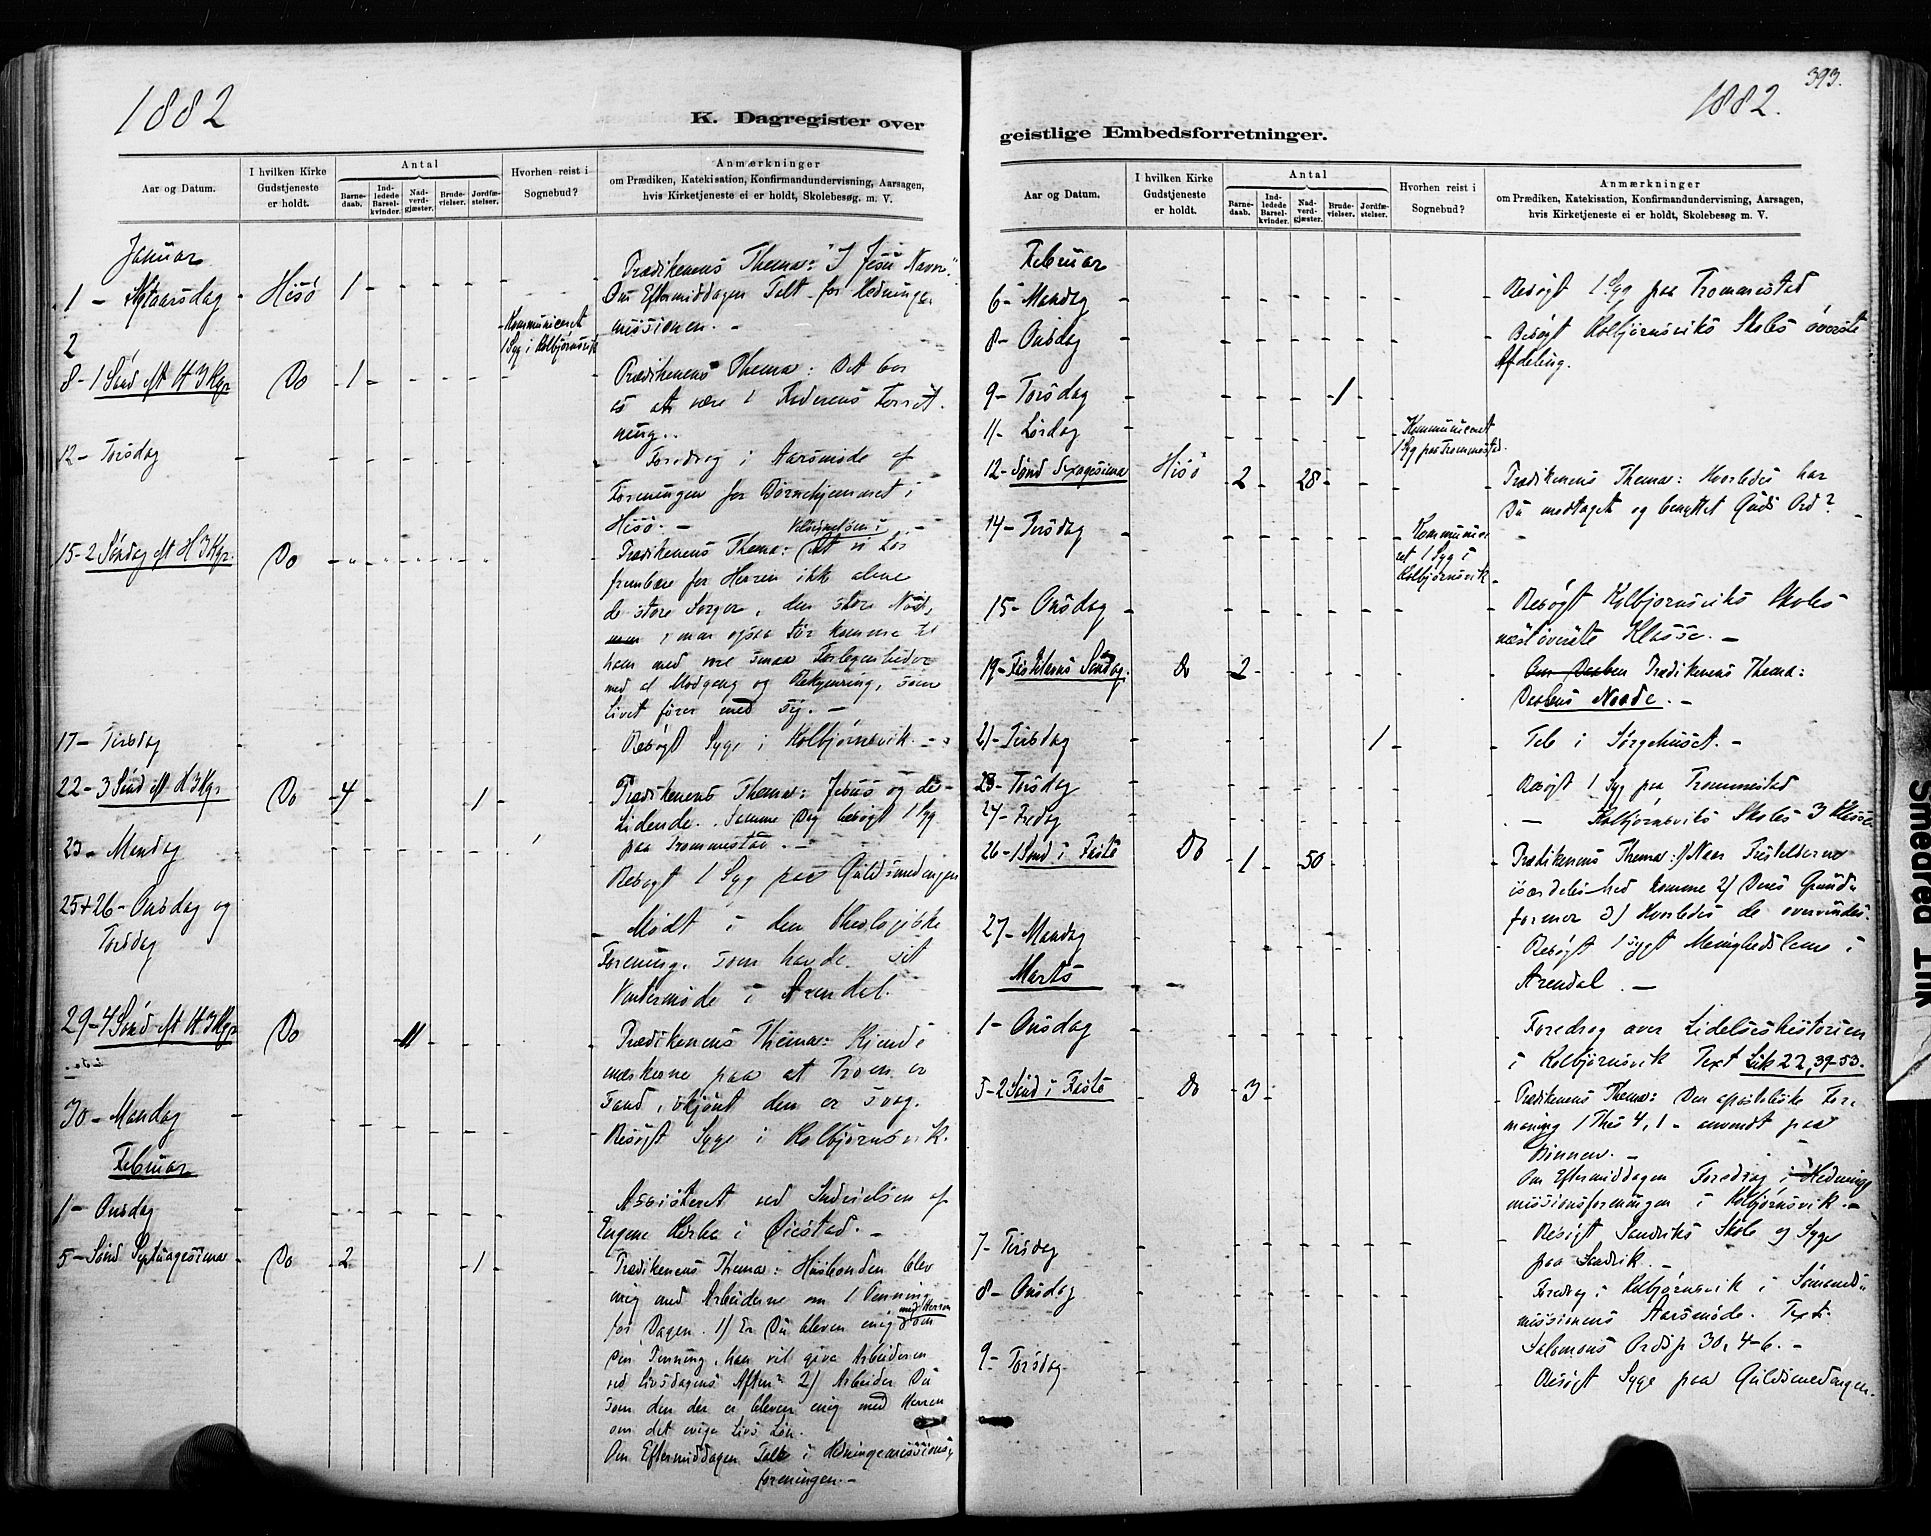 1882
K. Dagregister over
Aar og Datum.
I hvilken Kirke Gudstjeneste er holdt.
Antal
Barnedaab.
Indledede Barselkvinder.
Nadverdgjæster.
Brudevielser.
Jordfæstelser.
Hvorhen reist i Sognebud?
Anmærkninger
om Prædiken, Katekisation, Konfirmandundervisning, Aarsagen,
hvis Kirketjeneste ei er holdt, Skolebesøg m. V.
Januar
1 - Nytaarsdag - Hisö 1 - - - - Prædikenens Thema: "I Jesu Navn".
Om Eftermiddagen Talt for Hedninge
missionen. -
2 - Kommuniceret
1 Syg i Kolbjørnsvik
8 - 1 Sönd eft H 3 Kgr Do 1 - Prædikenens Thema: Det bør
os at være i Faderens Forret
ning.
12 - Torsdag - Foredrag i Aarsmöde af
Foreningen for Börnehjemmet i
Hisö. -
15 - 2 Söndag eft H 3 Kgr. Do Prædikenens Thema: Velsignelsen i, at vi tör
frembære for Herren ikke alene
de store Sorger, den store Nöd,
men, man ogsaa tör komme til
ham med vore smaa Forlegenheder
med al Modgang og Bekymring, som
Livet förer med sig. -
17 - Tirsdag - Besögt Syge i Kolbjørnsvik. -
22 - 3 Sönd eft H 3 Kgr Do 4 - 1 - Prædikenens Thema: Jesus og de
Lidende. Samme Dag besögt 1 Syg
paa Trommestad. -
23 - Mandag - Besögt 1 Syg paa Guldsmedengen
25 + 26 - Onsdag og
Torsdag - Mödt i den theologiske
Forening, som havde sit
Vintermöde i Arendal.
29 - 4 Sönd eft H 3 Kgr Do 11 - - - Prædikenens Thema: Kjende
mærkerne paa at Troen er
sand, skjönt den er svag.
30 - Mandag - Besögt Syge i Kolbjørnsvik.
Februar
1 - Onsdag - Assisteret ved Indvielsen af
Engene Kirke i Öiestad. -
5 - Sönd Septuagesima Do 2 - 1 - Prædikenens Thema: Husbonden blev
enig med Arbeiderne om 1 Penning
for Dagen. 1) Er Du bleven enig med Herren om
den Penning, han vil give Arbeideren
ved Livsdagens Aften? 2) Arbeider Du
som den der er bleven enig med Herren
om det evige Livs Lön.
Om Eftermiddagen Tale i Hedningemissions-
foreningen. -
393.
1882.
geistlige Embedsforretninger.
Aar og Datum.
I hvilken Kirke Gudstjeneste er holdt.
Antal
Barnedaab.
Indledede Barselkvinder.
Nadverdgjæster.
Brudevielser.
Jordfæstelser.
Hvorhen reist i Sognebud?
Anmærkninger
om Prædiken, Katekisation, Konfirmandundervisning, Aarsagen,
hvis Kirketjeneste ei er holdt, Skolebesøg m. V.
Februar
6 - Mandag - Besögt 1 Syg paa Trommestad
8 - Onsdag - Besögt Kolbjørnsviks Skoles överste
Afdeling.
9 - Torsdag - 1 -
11 - Lördag - Kommuniceret
1 Syg paa Trommestad.
12 - Sönd Sexagesima Hisö 2 - 28 - - Prædikenens Thema: Hvorledes har
Du modtaget og benyttet Guds Ord? -
14 - Tirsdag - Kommunice
ret 1 Syg i
Kolbjørnsvik -
15 - Onsdag - Besögt Kolbjørnsviks Skoles
næstöverste Klasse. -
19 - Fastelavns Söndag. Do 2 - Om Daaben Prædikenens Thema:
Daabens Naade. -
21 - Tirsdag - 1 - Tale i Sörgehuset. -
23 - Torsdag - Besögt 1 Syg paa Trommestad
24 - Fredag - Kolbjørnsviks Skoles 3 Klasse
26 - 1 Sönd i Faste Do 1 - 50 - Prædikenens Thema: 1) Naar Fristelserne
især komme 2) Deres Grund-
former 3) Hvorledes de overvindes.
27 - Mandag - Besögt 1 sygt Menighedslem i
Arendal. -
Marts - -
1 - Onsdag - Foredrag over Lidelseshistorien
i Kolbjørnsvik Text Luk 22, 39-53.
5 - 2 Sönd i Faste Do 3 - Prædikenens Thema: Den apostoliske For-
maning 1 Thes 4, 1 - anvendt paa
Bönnen. -
Om Eftermiddagen Foredrag i Hedninge
missionsforeningen i Kolbjørnsvik. -
7 - Tirsdag - Besögt Sandviks Skole og Syge
paa Sandvik. -
8 - Onsdag - Foredrag i Kolbjørnsvik i Sömands-
missionens Aarsmöde. Text:
Salomons Ordsp 30, 4-6. -
9 - Torsdag - Besögt Syge paa Guldsmedengen.
Smedrød Trik